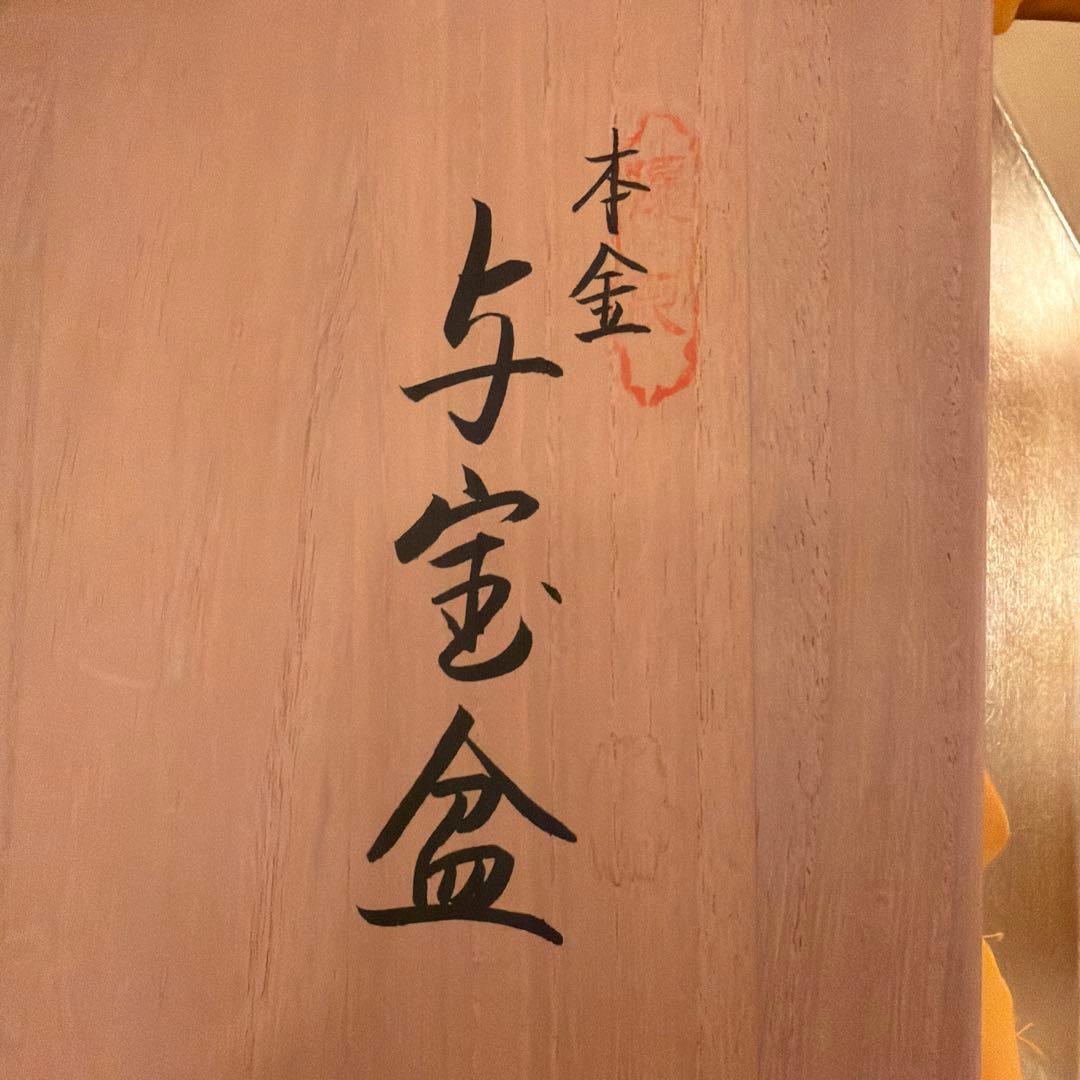 本金
与宝盆